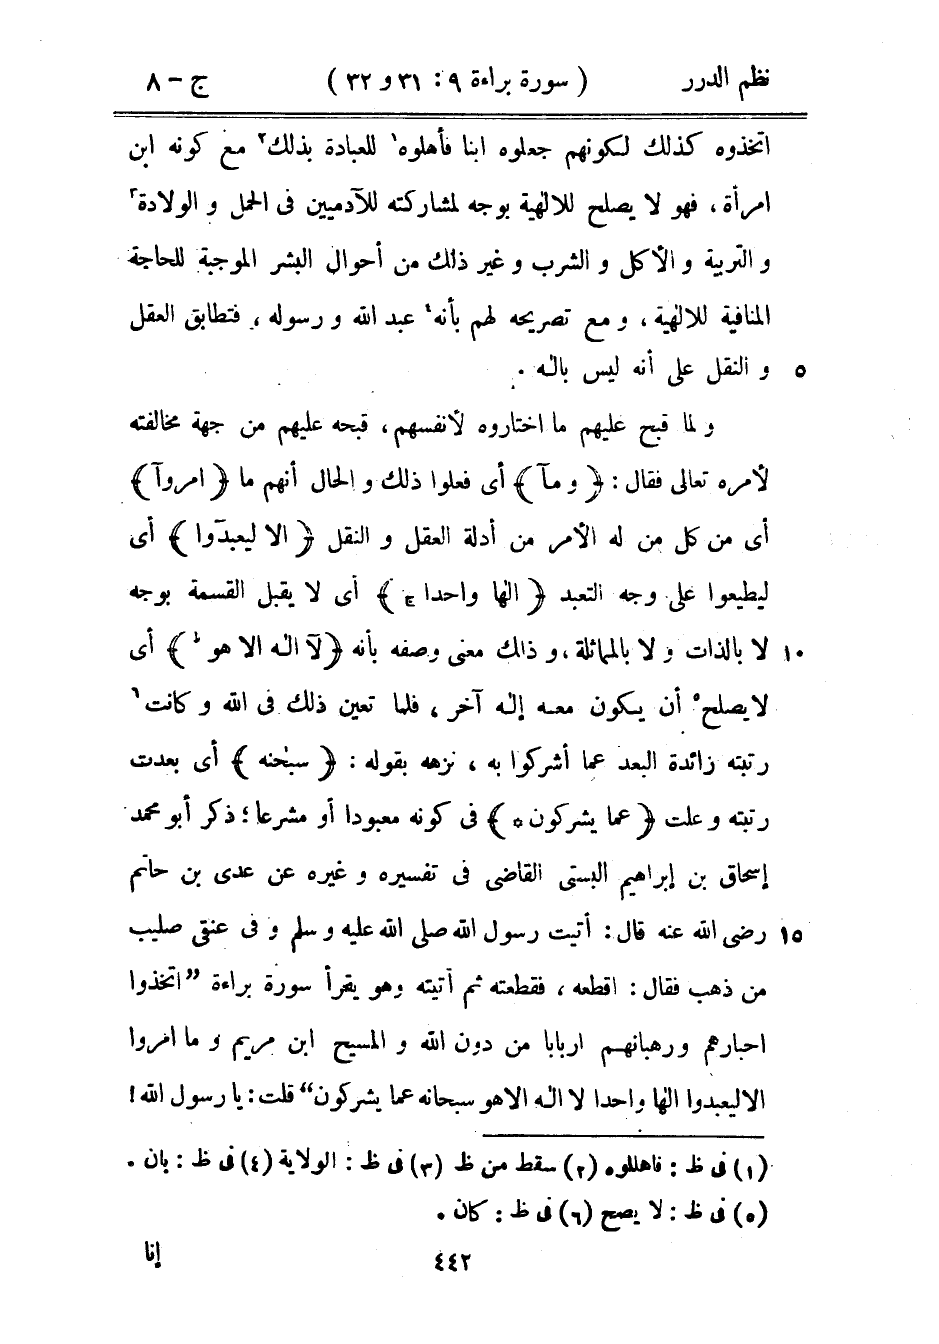 نظم الدرر ( سورة براءة ٩ : ٣١ و ٣٢ ) ج – ٨
اتخذوه كذلك لكونهم جعلوه ابنا فأهلوه١ للعبادة بذلك٢ مع كونه ابن
امرأة ، فهو لا يصلح للالٰهية بوجه لمشاركته للآدميين فى الحمل و الولادة٣
و التربية و الأكل و الشرب و غير ذلك من أحوال البشر الموجبة للحاجة
المنافية للالٰهية ، و مع تصريحه لهم بأنه٤ عبد الله و رسوله ، فتطابق العقل
٥ و النقل على أنه ليس بالٰه .
و لما قبح عليهم ما اختاروه لأنفسهم ، قبحه عليهم من جهة مخالفته
لأمره تعالى فقال : ﴿ و مآ ﴾ أى فعلوا ذلك و الحال أنهم ما ﴿ امروآ ﴾
أى من كل من له الأمر من أدلة العقل و النقل ﴿ الا ليعبدوآ ﴾ أى
ليطيعوا على وجه التعبد ﴿ الٰها واحدا ج ﴾ أى لا يقبل القسمة بوجه
١٠ لا بالذات و لا بالمماثلة ، و ذالك معنى وصفه بأنه ﴿ لآ الٰه الا هو ط ﴾ أى
لا يصلح٥ أن يكون معه إلٰه آخر ، فلما تعين ذلك فى الله و كانت٦
رتبته زائدة البعد عما أشركوا به ، نزهه بقوله : ﴿ سبحٰنه ﴾ أى بعدت
رتبته و علت ﴿ عما يشركون ه ﴾ فى كونه معبودا أو مشرعا ؛ ذكر أبو محمد
إسحاق بن إبراهيم البستى القاضى فى تفسيره و غيره عن عدى بن حاتم
١٥ رضى الله عنه قال : أتيت رسول الله صلى الله عليه و سلم و فى عنقى صليب
من ذهب فقال : اقطعه ، فقطعته ثم أتيته وهو يقرأ سورة براءة ”اتخذوا
احبارهم و رهبانهم اربابا من دون الله و المسيح ابن مريم و ما امروا
الا ليعبدوا الٰها واحدا لا الٰه الا هو سبحانه عما يشركون“ قلت : يا رسول الله !
(١) فى ظ : فاهللوه (٢) سقط من ظ (٣) فى ظ : الولاية (٤) فى ظ : بان .
(٥) فى ظ : لا يصح (٦) فى ظ : كان .
٤٤٢ إنا